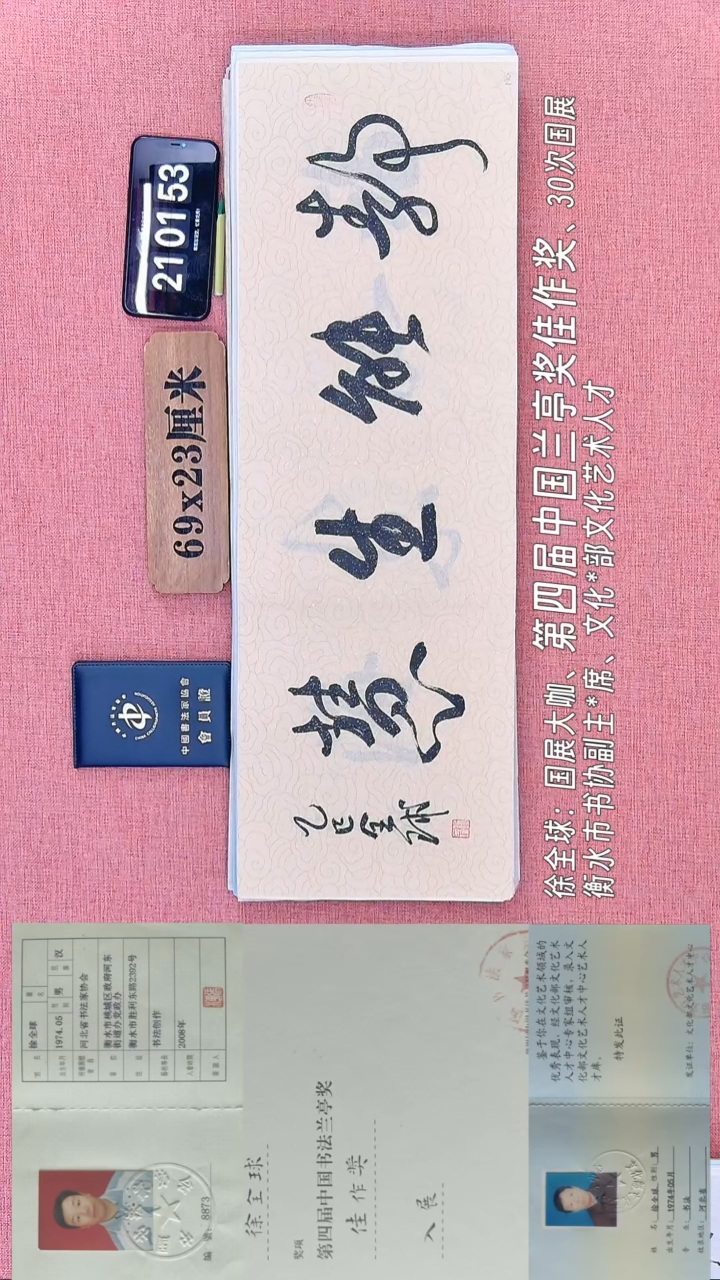 21 01 53
69x23厘米
中國書法家協會
會員證
静能生慧
乙巳全球
徐全球：国展大咖、第四届中国兰亭奖佳作奖、30次国展
衡水市书协副主*席、文化*部文化艺术人才
徐全球
1974.05 男 汉
河北省书法家协会
衡水市桃城区政府河东
街道办党政办
衡水市胜利东路2392号
书法创作
2008年
编号: 8873
徐全球
奖项
第四届中国书法兰亭奖
佳作奖
入展
鉴于你在文化艺术领域的
优秀表现，经文化部文化艺术
人才中心专家组审核，录入文
化部文化艺术人才中心艺术人
才库。
特发此证
发证单位：文化部文化艺术人才中心
姓名：徐全球 性别：男
出生年月：1974年05月
专业：书法